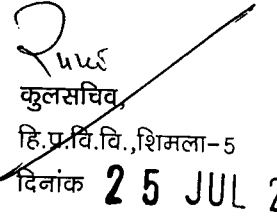 कुलसचिव,
हि.प्र.वि.वि.,शिमला-5
दिनांक 25 JUL 2